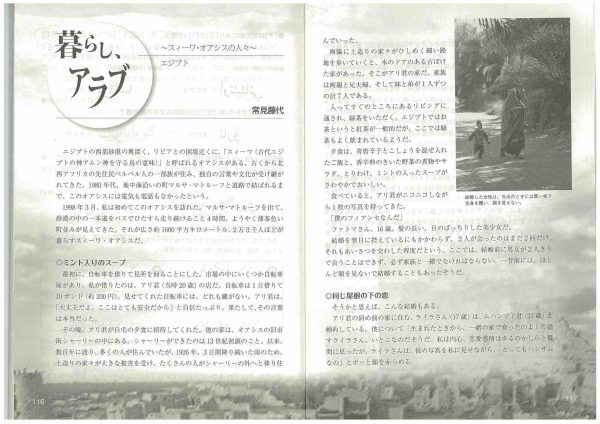 暮らし、
アラブ
〜スィーワ・オアシスの人々〜
エジプト
常見藤代
エジプトの西部砂漠の奥深く、リビアとの国境近くに、「スィーワ（古代エジ
プトの神アムン神を守る鳥の意味）」と呼ばれるオアシスがある。古くから北
西アフリカの先住民ベルベル人の一部族が住み、独自の言葉や文化が受け継が
れてきた。1980年代、地中海沿いの町マルサ・マトルーフと道路で結ばれるま
で、このオアシスには電気も電話もなかったという。
1998年3月、私は初めてこのオアシスを訪れた。マルサ・マトルーフを出て、
砂漠の中の一本道をバスでひたすら走り続けること4時間。ようやく薄茶色い
町並みが見えてきた。それが広さ約1600平方キロメートル、2万3千人ほどが
暮らすスィーワ・オアシスだ。
◎ミント入りのスープ
最初に、自転車を借りて見所を回ることにした。市場の中にいくつか自転車
屋があり、私が借りたのは、アリ君（当時20歳）の店だ。自転車は1日借りて
10ポンド（約200円）。見せてくれた自転車には、どれも鍵がない。アリ君は、
「大丈夫だよ。ここはとても安全だから」と自信たっぷり。果たして、その言葉
は本当だった。
その晩、アリ君が自宅の夕食に招待してくれた。彼の家は、オアシスの旧市
街シャーリーの中にある。シャーリーができたのは13世紀初頭のこと。以来、
数百年に渡り、多くの人が住んでいたが、1926年、3日間降り続いた雨のため、
土造りの家々が大きな被害を受け、たくさんの人がシャーリーの外へと移り住
116
んでいった。
両脇に土造りの家々がひしめく細い路
地を歩いていくと、木のドアのある古ぼけ
た家があった。そこがアリ君の家だ。家族
は両親と兄夫婦、そして妹と弟が1人ずつ
の計7人である。
入ってすぐのところにあるリビングに
通され、緑茶をいただく。エジプトではお
茶というと紅茶が一般的だが、ここでは緑
茶もよく飲まれているようだ。
夕食は、青唐辛子とこしょうを混ぜ入れた
ご飯と、香辛料のきいた野菜の煮物やサ
ラダ。とりわけ、ミントの入ったスープが
さわやかでおいしい。
食べていると、アリ君がニコニコしなが
ら1枚の写真を持ってきた。
「僕のフィアンセなんだ」
ファトマさん、16歳。髪の長い、目のぱっちりした美少女だ。
結婚を翌月に控えているにもかかわらず、2人が会ったのはまだ2回だけ。
それもあいさつを交わした程度だという。ここでは、結婚前に男女が2人きり
で会うことはできず、必ず家族と一緒でなければならない。一昔前には、ほと
んど顔を見ないで結婚することもあったそうだ。
◎同じ屋根の下の恋
そうかと思えば、こんな結婚もある。
アリ君の斜め前の家に住む、ライラさん（17歳）は、ムハンマド君（21歳）と
婚約している。彼について「生まれたときから、一緒の家で育ったのよ」と話
すライラさん。いとこなのだそうだ。私は内心、恋愛感情はあるのかしらと疑
問に思ったが、ライラさんは、彼の写真を私に見せながら、「とってもハンサム
なの」とポッと頬を赤らめる。
117